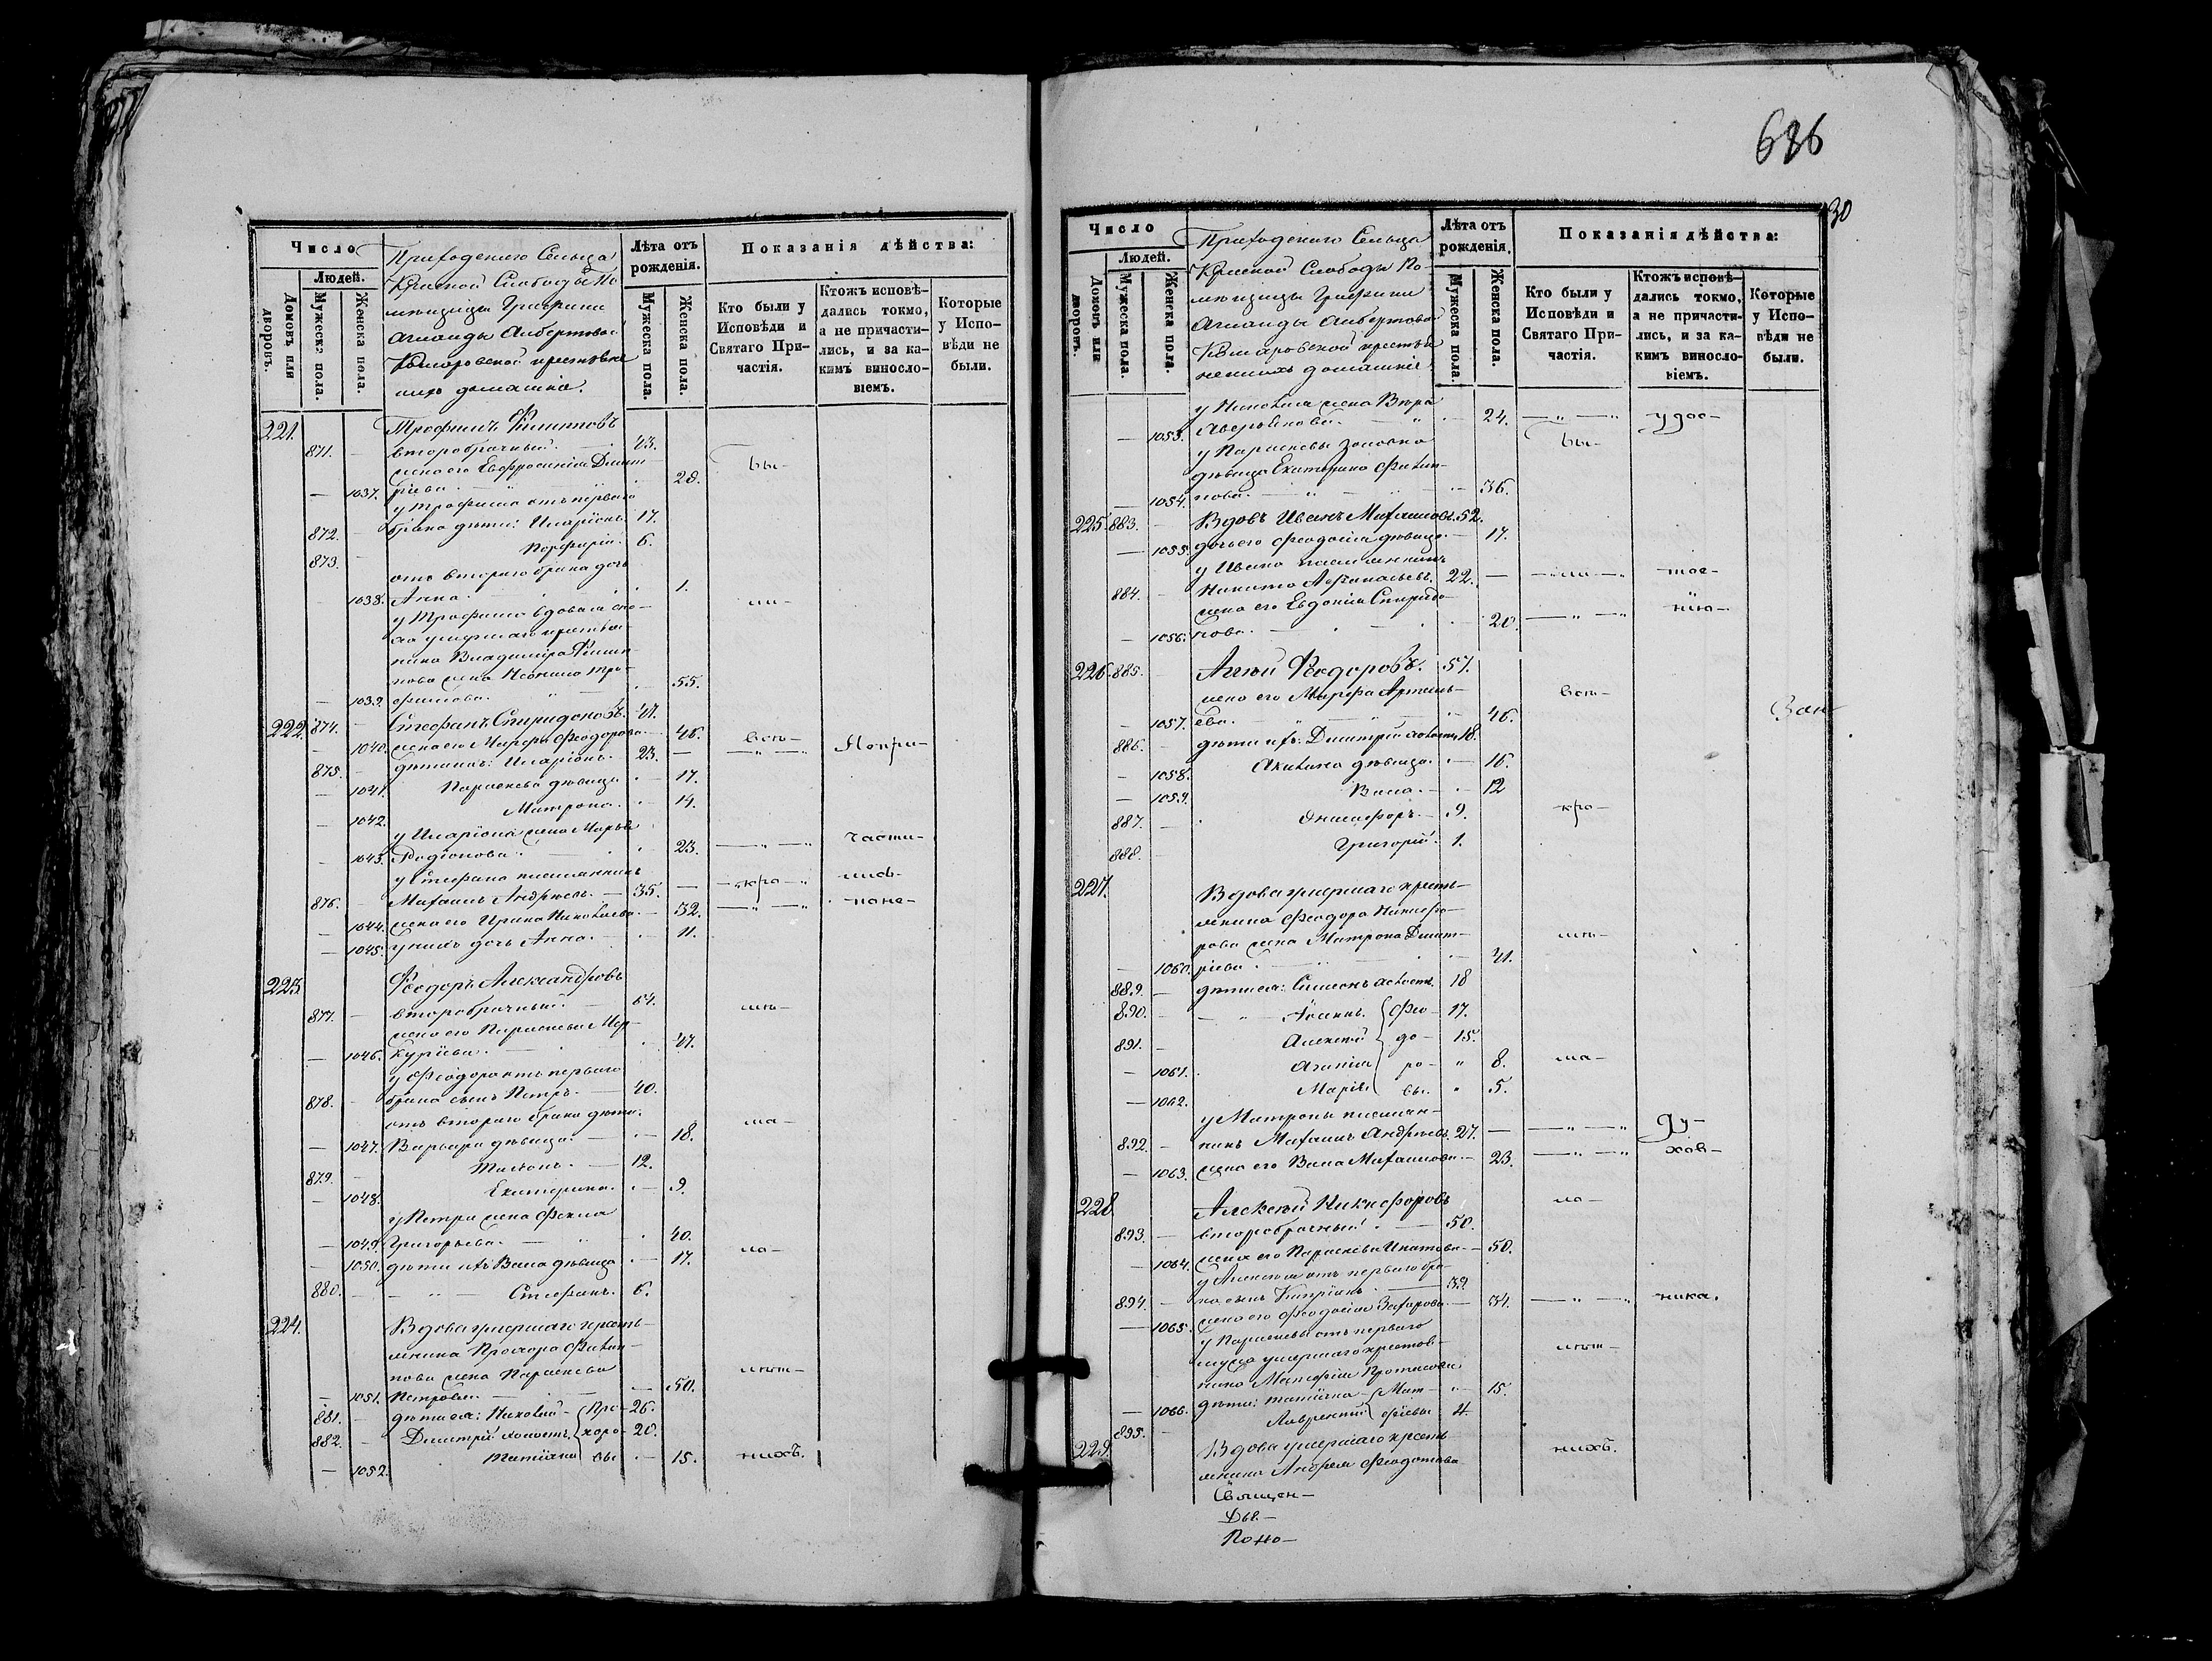 Число
Людей.
Домовъ или дворовъ.
Мужеска пола.
Женска пола.
Приходскаго Сельца
Красной Слободы По-
мѣщицы Графини
Альбертовой
Комаровской крестьян
скихъ домашніе.
Лѣта отъ рожденія.
Мужеска пола.
Женска пола.
Показанія дѣйства:
Кто были у Исповѣди и Святаго Причастія.
Ктожъ исповѣдались токмо, а не причастились, и за какимъ винословіемъ.
Которые у Исповѣди не были.
221. Трофимъ Филиповъ
871. второбрачный. 43.
жена его Евфросинія Димит-
1037. ріева. 28. бы-
у Трофима отъ перваго
872. брака дѣти: Иларіонъ. 17.
873. Порфирій. 6.
отъ втораго брака дочь
1038. Анна. 1.
у Трофима вдовая сно-
ха умершаго крестья-
нина Владиміра Филип-
пова жена Неонила Тро-
1039. фимова. 55.
222. 874. Стефанъ Спиридоновъ. 47.
1040. жена его Марфа Феодорова. 46. всѣ-
875. дѣти ихъ: Иларіонъ. 23. — „ — „ Непри-
1041. Параскева дѣвица. 17.
1042. Матрона. 14.
у Иларіона жена Марья
1043. Родіонова. 23. — „ — „ части-
у Стефана племянникъ
876. Михаилъ Андреевъ. 35. — кро — „ лись-
1044. жена его Ирина Николаева. 32. — „ — „ поне-
1045. у нихъ дочь Анна. 11.
223. Феодоръ Александровъ
877. второбрачный. 64.
жена его Параскева Мер-
1046. куріева. 47.
у Феодора отъ перваго
878. брака сынъ Петръ. 40.
отъ втораго брака дѣти:
1047. Варвара дѣвица. 18. ма-
879. Тихонъ. 12.
1048. Екатерина. 9.
у Петра жена Фекла
1049. Григорьева. 40.
1050. дѣти ихъ Васса дѣвица 17. ло-
880. — „ — Стефанъ. 6.
224. Вдова умершаго кресть-
янина Прохора Филип-
пова жена Параскева
1051. Петрова. 50. лѣт-
881. дѣти ея: Николай Про- 26.
882. Димитрій холостъ. хоро- 20.
1052. Татіана вы 15. нихъ.
686
30
Число
Людей.
Домовъ или дворовъ.
Мужеска пола.
Женска пола.
Приходскаго Сельца
Красной Слободы По-
мѣщицы Графини
Альбертовой
Комаровской крестья
нскихъ домашніе.
Лѣта отъ рожденія.
Мужеска пола.
Женска пола.
Показанія дѣйства:
Кто были у Исповѣди и Святаго Причастія.
Ктожъ исповѣдались токмо, а не причастились, и за какимъ винословіемъ.
Которые у Исповѣди не были.
у Николая жена Вѣра
1053. Аверьянова. 24. — „ — „ удос-
у Параскевы золовка бы-
дѣвица Екатерина Филип-
1054. пова. 36.
225. 883. Вдовъ Иванъ Михаиловъ. 52.
1055. дочь его Феодосія дѣвица. 17.
у Ивана племянникъ
884. Никита Афанасьевъ. 22. — ли — „ тое-
жена его Евдокія Спиридо-
1056. нова. 20. — „ — „ нію-
226. 885. Аггей Феодоровъ. 57.
жена его Марфа Артемь-
1057. ева. 46. всѣ-
886. дѣти ихъ: Димитрій холостъ. 18.
1058. Акилина дѣвица. 16.
1059. Васса. 12
887. Онисифоръ. 9. кро-
888. Григорій. 1.
227. Вдова умершаго кресть-
янина Феодора Никифо-
рова жена Матрона Димит-
1060. ріева. 41.
889. дѣти ея: Симеонъ холостъ. 18
890. — „ — Іоаннъ. Фео- 17.
891. Алексѣй до- 15.
1061. Агапія ро- „ 8. ма-
1062. Марія. вы. „ 5.
у Матроны племян-
892. никъ Михаилъ Андреевъ. 27. — — „ — „ Ду-
1063. жена его Васса Михаилова. 23. — „ — „ хов-
228 Алексѣй Никифоровъ ло-
893. второбрачный. 50.
1064. жена его Параскева Ипатова. 50.
у Алексѣя отъ перваго бра-
894. ка сынъ Кипріанъ. 39.
1065. жена его Феодосія Захарова. 34. — „ — „ ника.
у Параскевы отъ перваго
мужа умершаго крестья-
нина Матфія Протасова
1066. дѣти: Татіана Мат- „ 15.
895. Лаврентій фіевы 4.
229. Вдова умершаго кресть- нихъ.
янина Андрея Феодотова
Священ-
Дья-
Поно-